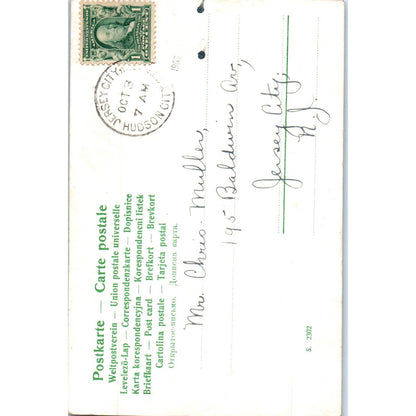 Postkarte — Carte postale
Weltpostverein — Union postale universelle
Levelező-Lap — Correspondenzkarte — Dopisnice
Karta korespondencyjna — Korespondenční lístek
Briefkaart — Post card — Brefkort — Brevkort
Cartolina postale — Tarjeta postal
Открытое-письмо. Дописна карта.
JERSEY CITY, N.J.
OCT 3
7 AM
HUDSON CITY
190
Mr. Chris. Muller,
195 Baldwin Av,
Jersey City,
N. J.
S. 2302